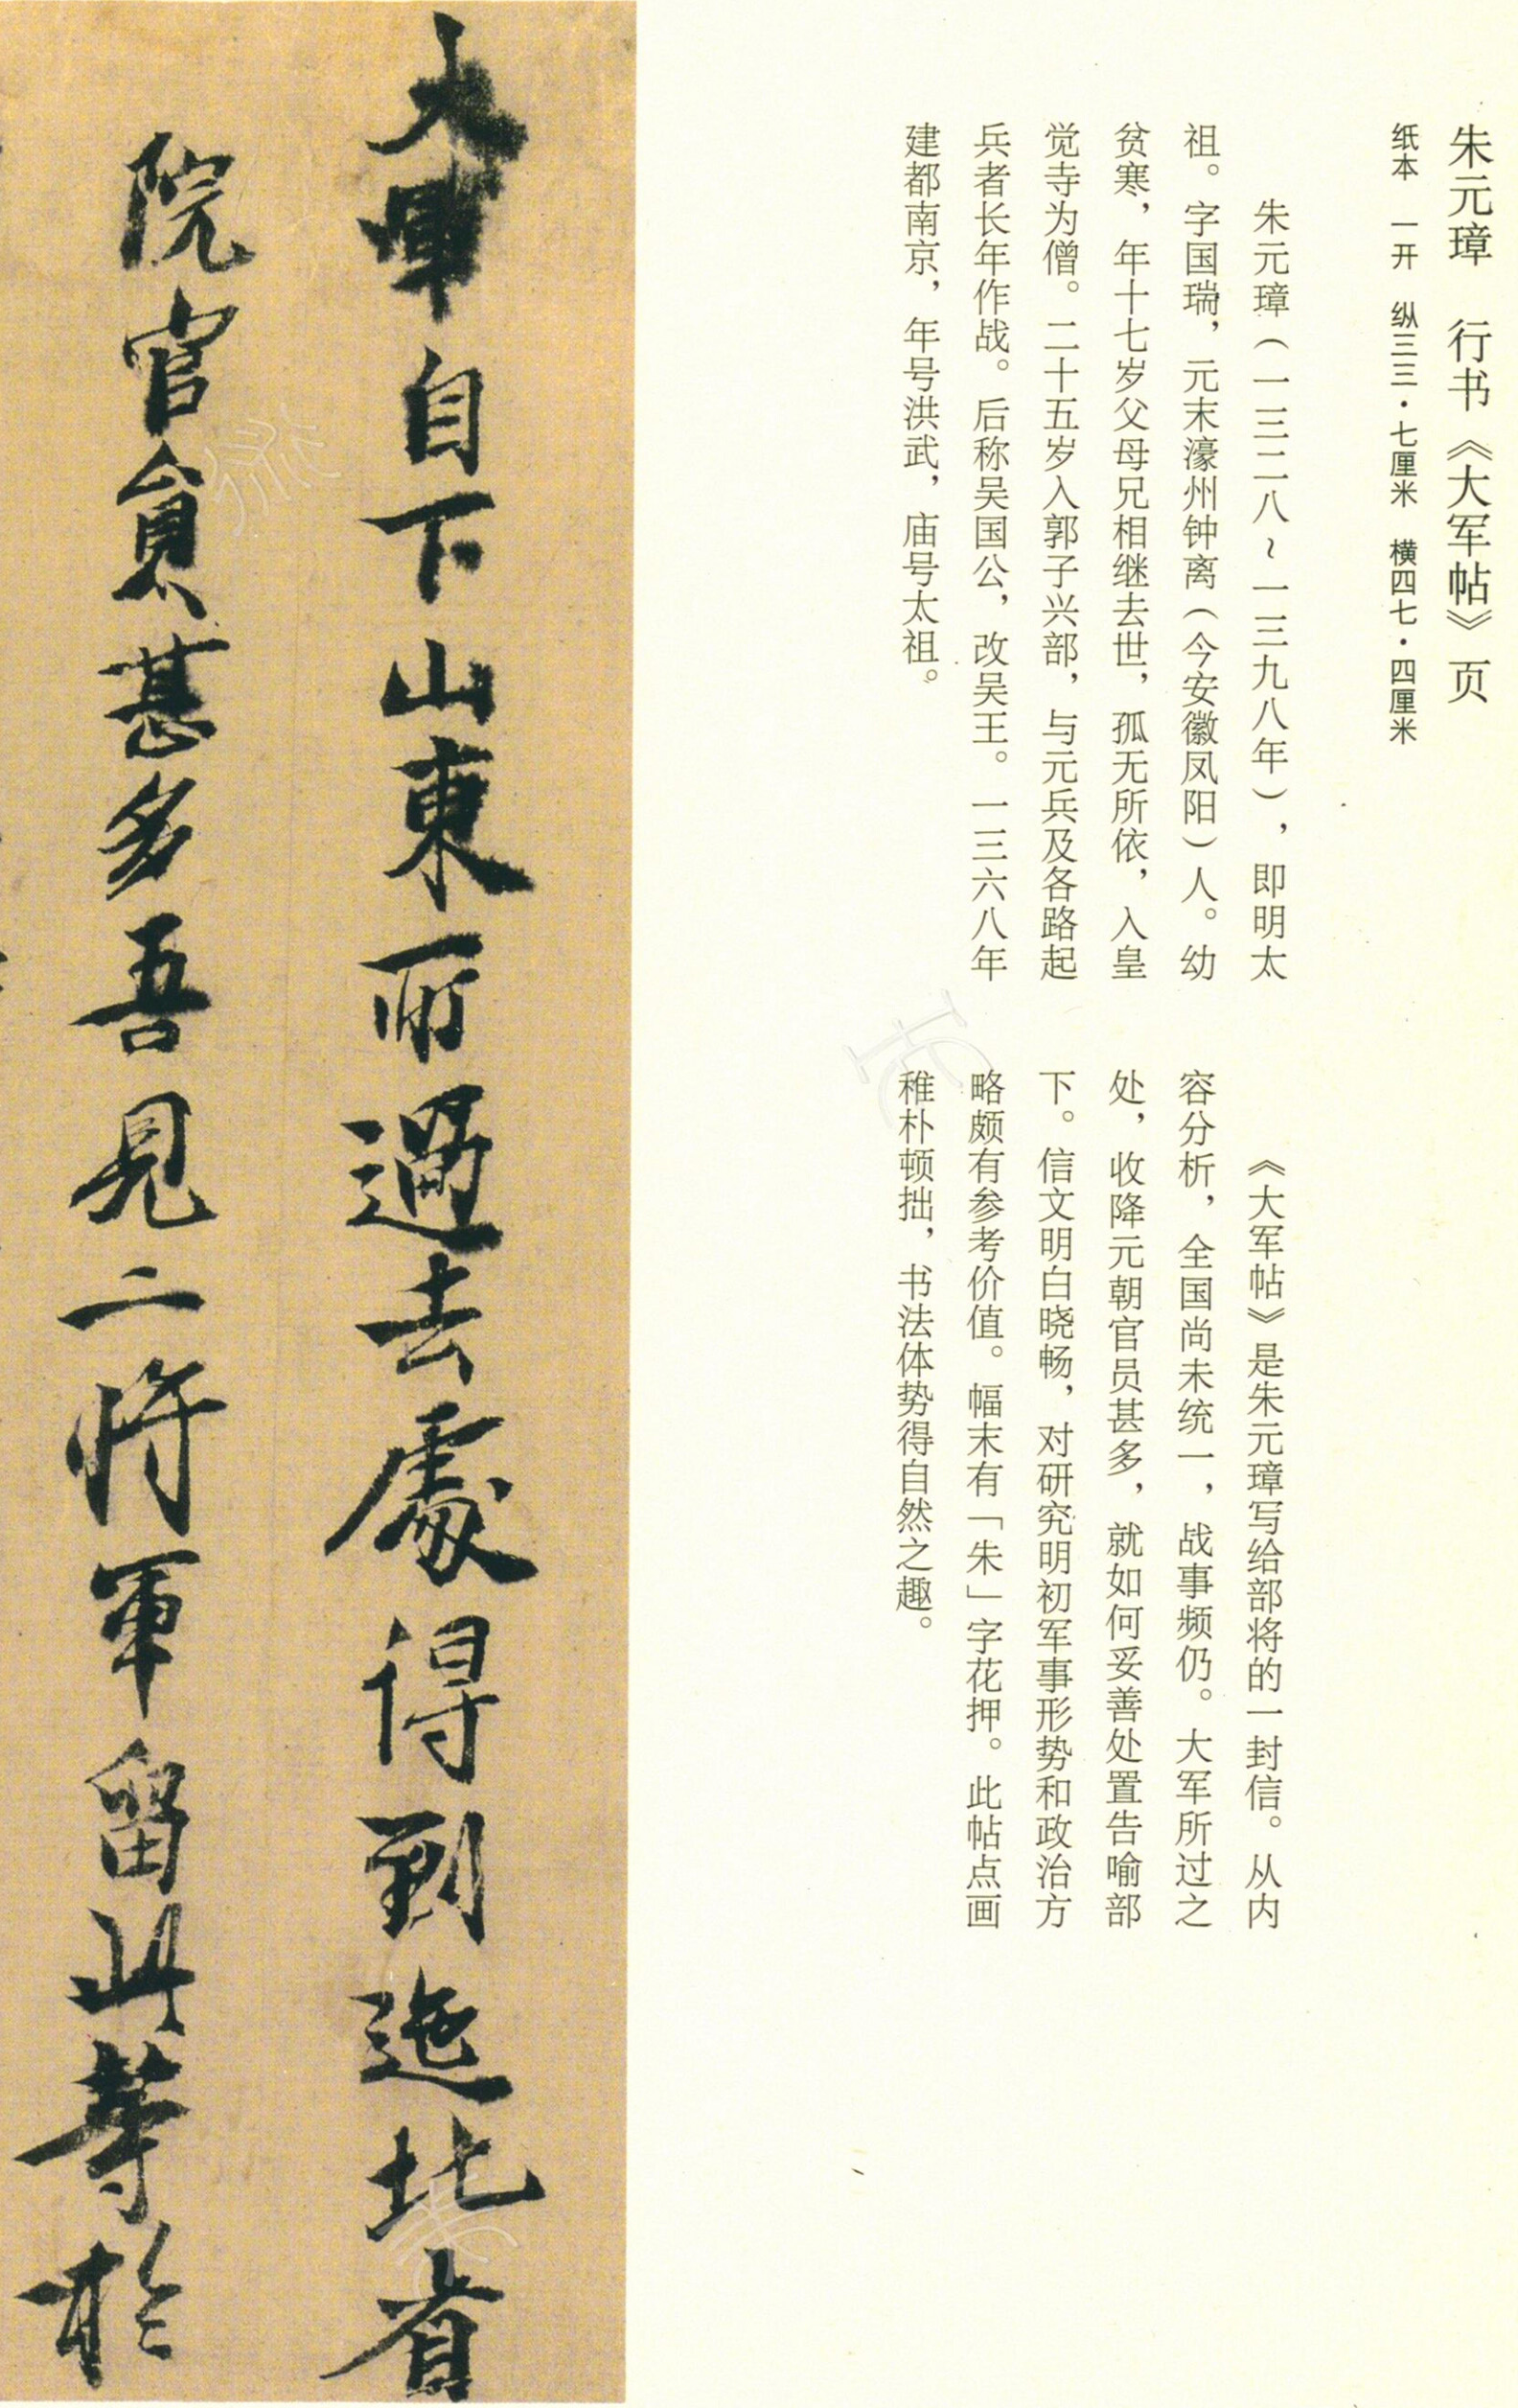 朱元璋 行书《大军帖》页
纸本 一开 纵三三·七厘米 横四七·四厘米
朱元璋（一三二八～一三九八年），即明太
祖。字国瑞，元末濠州钟离（今安徽凤阳）人。幼
贫寒，年十七岁父母兄相继去世，孤无所依，入皇
觉寺为僧。二十五岁入郭子兴部，与元兵及各路起
兵者长年作战。后称吴国公，改吴王。一三六八年
建都南京，年号洪武，庙号太祖。
《大军帖》是朱元璋写给部将的一封信。从内
容分析，全国尚未统一，战事频仍。大军所过之
处，收降元朝官员甚多，就如何妥善处置告喻部
下。信文明白晓畅，对研究明初军事形势和政治方
略颇有参考价值。幅末有「朱」字花押。此帖点画
稚朴顿拙，书法体势得自然之趣。
大軍自下山東所過去處得到迤北省
院官員甚多吾見二將軍留此等於